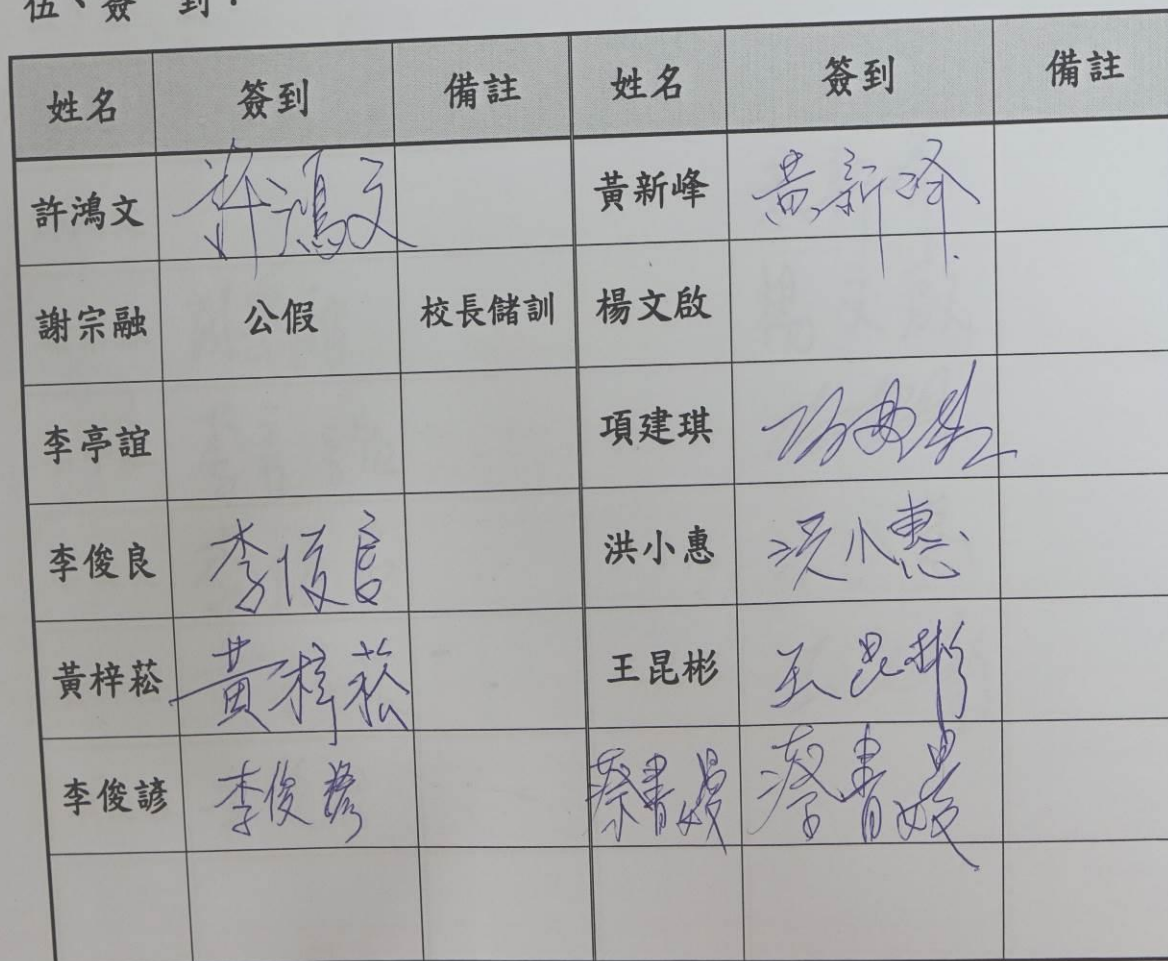 伍、簽 到：
姓名 簽到 備註 姓名 簽到 備註
許鴻文 許鴻文 黃新峰 黃新峰
謝宗融 公假 校長儲訓 楊文啟
李亭誼 項建琪
李俊良 李俊良 洪小惠 洪小惠
黃梓菘 黃梓菘 王昆彬 王昆彬
李俊諺 李俊諺